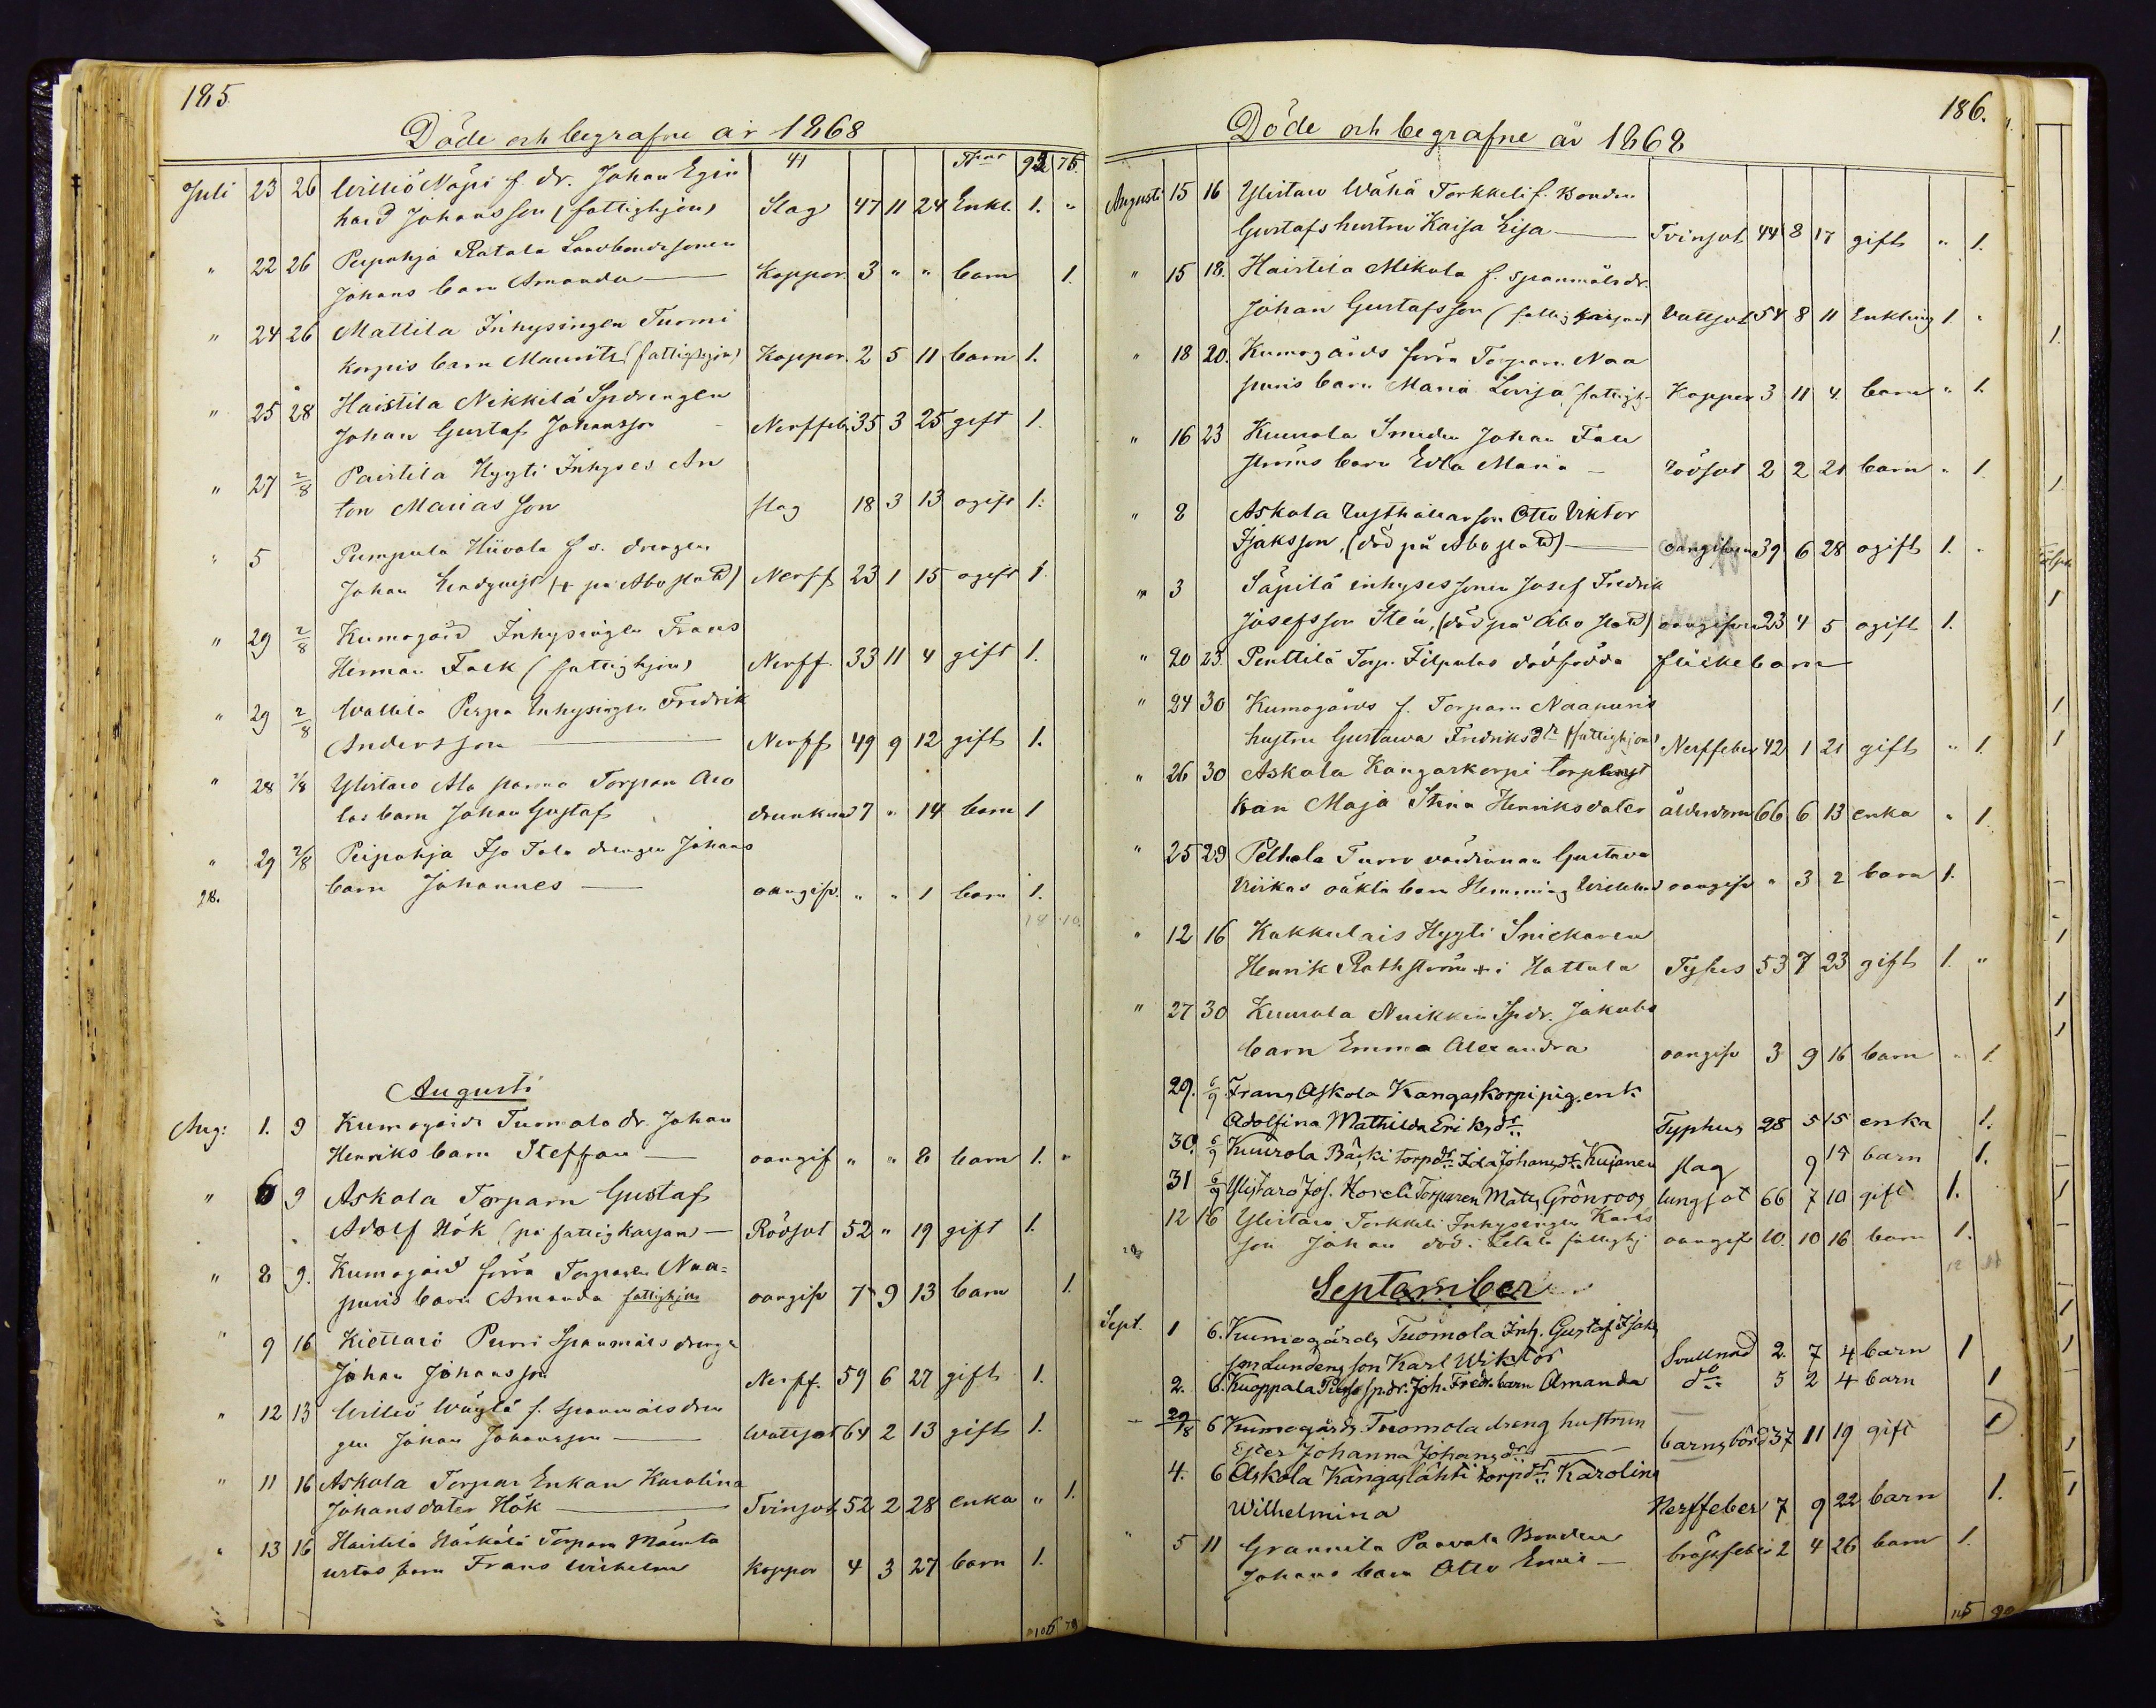 185
Döde och begrafne år 1868
41 Trnr 92 75.
Juli 23 26 Williö Näpi f. dr. Johan Egin
hard Johansson (fattighjon) Slag 47 11 24 Enkl. 1. "
" 22 26 Peipohja Ratala Landbondesonen
Johans barn Amanda — Koppor. 3 " " barn 1.
" 24 26 Mattila Inhysingen Tuomi
korpis barn Mauritz (fattighjon) Koppor. 2 5 11 barn 1.
" 25 28 Haistila Nikkilä Spdrengen
Johan Gustaf Johansson Nerffeb. 35 3 25 gift 1.
" 27 2/8 Paistila Hyyti Inhyses An
ton Marias son slag 18 3 13 ogift 1.
" 5 Pumpula Hiivola f. s. drengen
Johan Lindqvist († på Åbo stad) Nerff 23 1 15 ogift 1
" 29 2/8 Kumogård Inhysingen Frans
Herman Falk (fattighjon) Nerff. 33 11 4 gift 1.
" 29 2/8 Wallila Perpa Inhysingen Fredrik
Andersson — Nerff 49 9 12 gift 1.
" 28 2/8 Ylistaro Ala panna Torparn Aro
las barn Johan Gustaf drunknad 7 " 14 barn 1
" 29 2/8 Peipohja Iso Tala drengen Johans
28. barn Johannes — oangifv. " " 1 barn 1.
18 10.
Augusti
Aug: 1. 9 Kumogårds Tuomola dr. Johan
Henriks barn Steffan — oangif " " 8 barn 1. "
" 6 9 Askola Torparn Gustaf
Adolf Hök (på fattigkassan) — Rödsot 52 " 19 gift 1.
" 8 9. Kumogård förra Torparen Naa=
puris barn Amanda fattighjon oangifv 7 9 13 barn 1.
" 9 16 Kiettari Purri Spanmåls dreng
Johan Johansson Nerff. 59 6 27 gift 1.
" 12 13 Williö Wäylä f. Spanmåls dren
gen Johan Johansson — Wattsot 64 2 13 gift 1.
" 11 16 Askola Torpar Enkan Karolina
Johansdoter Hök — Tvinsot 52 2 28 enka " 1.
" 13 16 Haistila Härkälä Torparn Mänta
ustas barn Frans Wilhelm Koppor 4 3 27 barn 1.
106 79
186.
Döde och begrafne år 1868
Augusti 15 16 Ylistaro Wähä Torkkeli f. Bonden
Gustafs hustru Kaisa Lisa — Tvinsot 44 8 17 gift " 1.
" 15 18. Haistila Mikola f. spanmålsdr.
Johan Gustafsson (fattigkassan) Vattsot 54 8 11 Enkling 1 "
" 18 20. Kumogårds förra Torparn Naa
puris barn Maria Lovisa (fattigh. Koppor 3 11 4 barn " 1.
" 16 23 Kuurola Smeden Johan Fall
ströms barn Edla Maria — Rödsot 2 2 21 barn " 1
" 8 Askola Rusthållarson Otto Viktor
Isaksson, (död på Åbo stad) — oangifven 39 6 28 ogift 1. "
" 3 Säpilä inhysessonen Josef Fredrik
Josefsson Stén, (död på Åbo stad) oangifven 23 4 5 ogift 1.
" 20 23. Penttilä Torp. Filpulas dödfödda flickebarn
" 24 30 Kumogårds f. Torparn Naapuris
hustru Gustawa Fredriksdr (fattighjon) Nerffeber 42 1 21 gift " 1.
" 26 30 Askola Kangaskorpi torpinhyst
kan Maja Stina Henriksdoter ålderdom 66 6 13 enka " 1.
" 25 29 Pelhola Turro värdinnan Gustava
Ulrikas oäkta barn Hemming Wilhelm oangifv " 3 2 barn 1.
" 12 16 Kakkulais Hyyti Snickaren
Henrik Rothström † i Hattula Typhus 53 7 23 gift 1. "
" 27 30 Kuurola Nuikkin Spdr. Jakobs
barn Emma Alexandra oangifv 3 9 16 barn " 1.
29. 6/9 Frans Askola Kangaskorpi pig. enk.
Adolfina Mathilda Eriksdr Typhus 28 5 15 enka 1.
30. 6/9 Kuurola Bäcki torpdr Ida Johansdr Kujanen slag 9 15 barn 1.
31 6/9 Ylistaro Jos. Hoseli Torparen Matts Grönroos lungsot 66 7 10 gift 1.
12 16 Ylistaro Torkkeli Inhysingen Karls
son Johan död i Letala fattighj oangifv 10. 10 16 barn 1.
September
Sept. 1 6. Kumogårds Tuomola Inh. Gustaf Isaks
son Lundens son Karl Wiktor Svullnad 2. 7 4 barn 1
2. 6. Kuoppala Pläsi spdr. Joh. Fredr. barn Amanda do 5 2 4 barn 1
29/8 6 Kumogårds Tuomola dreng hustrun
Ester Johanna Johansdr — barnsbörd 37 11 19 gift 1
4. 6 Askola Kangaslähti torpdr Karolina
Wilhelmina Nerffeber 7 9 22 barn 1.
" 5 11 Grannila Paavola Bonden
Johans barn Otto Emil — bröstfeber 2 4 26 barn 1.
115 90